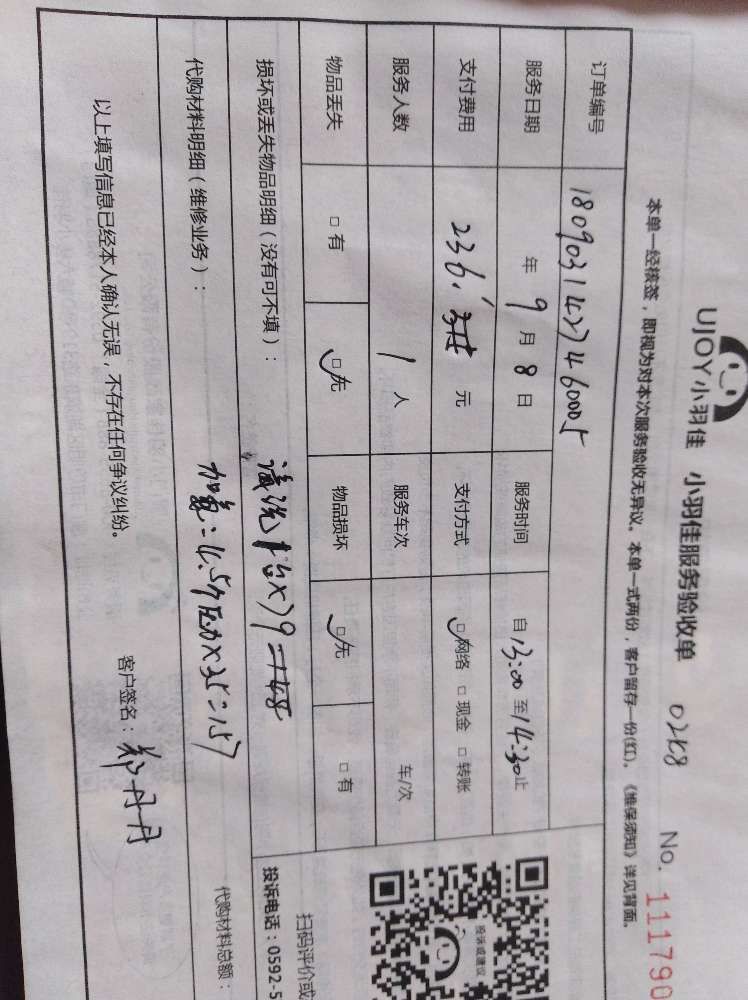 UJOY小羽佳 小羽佳服务验收单 0258 No. 111790
本单一经核签，即视为对本次服务验收无异议。本单一式两份，客户留存一份(红)。《维保须知》详见背面。
订单编号 1809031427460005
服务日期 年 9 月 8 日 服务时间 自 13:00 至 14:30 止
支付费用 236. 元 支付方式 网络 现金 转账
服务人数 1 人 服务车次 车/次
物品丢失 有 无 物品损坏 无 有
损坏或丢失物品明细（没有可不填）：
清洗1台×79=
代购材料明细（维修业务）：
加氟:4.5个压力×35=157
代购材料总额：
以上填写信息已经本人确认无误，不存在任何争议纠纷。
客户签名：郑丹丹
投诉或建议
扫码评价或
投诉电话：0592-5